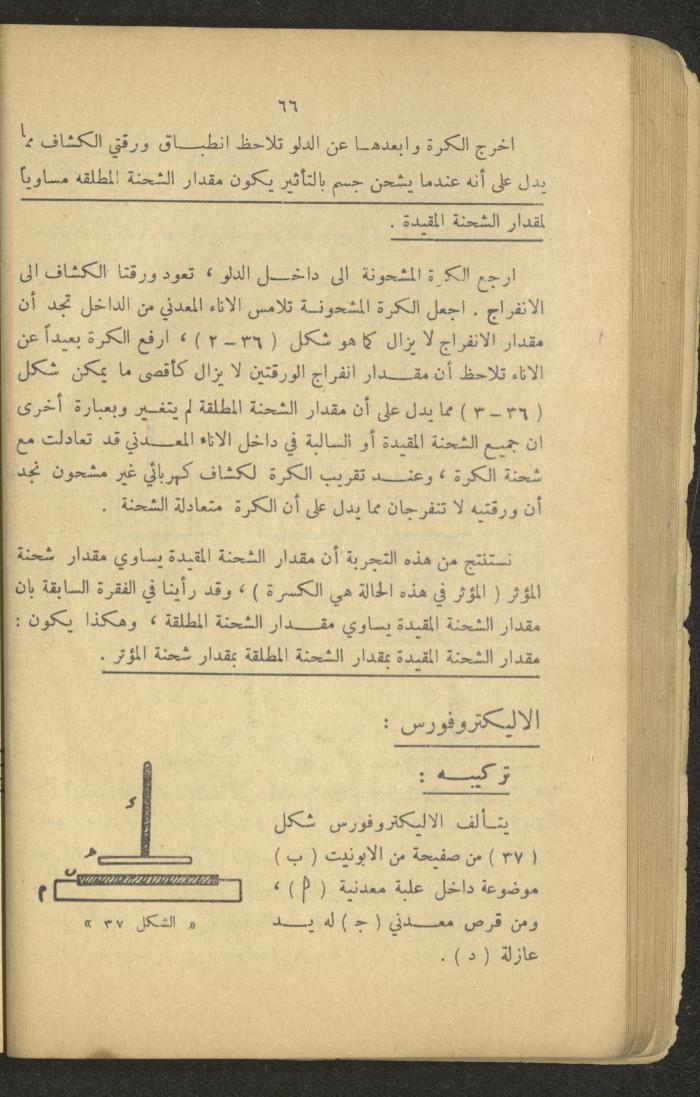 ٦٦
اخرج الكرة وابعدها عن الدلو تلاحظ انطباق ورقتي الكشاف مما
يدل على أنه عندما يشحن جسم بالتأثير يكون مقدار الشحنة المطلقه مساوياً
لمقدار الشحنة المقيدة .
ارجع الكرة المشحونة الى داخل الدلو ، تعود ورقتا الكشاف الى
الانفراج . اجعل الكرة المشحونة تلامس الاناء المعدني من الداخل تجد أن
مقدار الانفراج لا يزال كما هو شكل ( ٣٦ – ٢ ) ، ارفع الكرة بعيداً عن
الاناء تلاحظ أن مقدار انفراج الورقتين لا يزال كأقصى ما يمكن شكل
( ٣٦ – ٣ ) مما يدل على أن مقدار الشحنة المطلقة لم يتغير وبعبارة أخرى
ان جميع الشحنة المقيدة أو السالبة في داخل الاناء المعدني قد تعادلت مع
شحنة الكرة ، وعند تقريب الكرة لكشاف كهربائي غير مشحون نجد
أن ورقتيه لا تنفرجان مما يدل على أن الكرة متعادلة الشحنة .
نستنتج من هذه التجربة أن مقدار الشحنة المقيدة يساوي مقدار شحنة
المؤثر ( المؤثر في هذه الحالة هي الكسرة ) ، وقد رأينا في الفقرة السابقة بان
مقدار الشحنة المقيدة يساوي مقدار الشحنة المطلقة ، وهكذا يكون :
مقدار الشحنة المقيدة بمقدار الشحنة المطلقة بمقدار شحنة المؤتر .
الاليكتروفورس :
تركيبه :
يتألف الاليكتروفورس شكل
( ٣٧ ) من صفيحة من الابونيت ( ب )
موضوعة داخل علبة معدنية ( م ) ،
ومن قرص معدني ( ج ) له يد
عازلة ( د ) .
د
ج
ب
م
« الشكل ٣٧ »